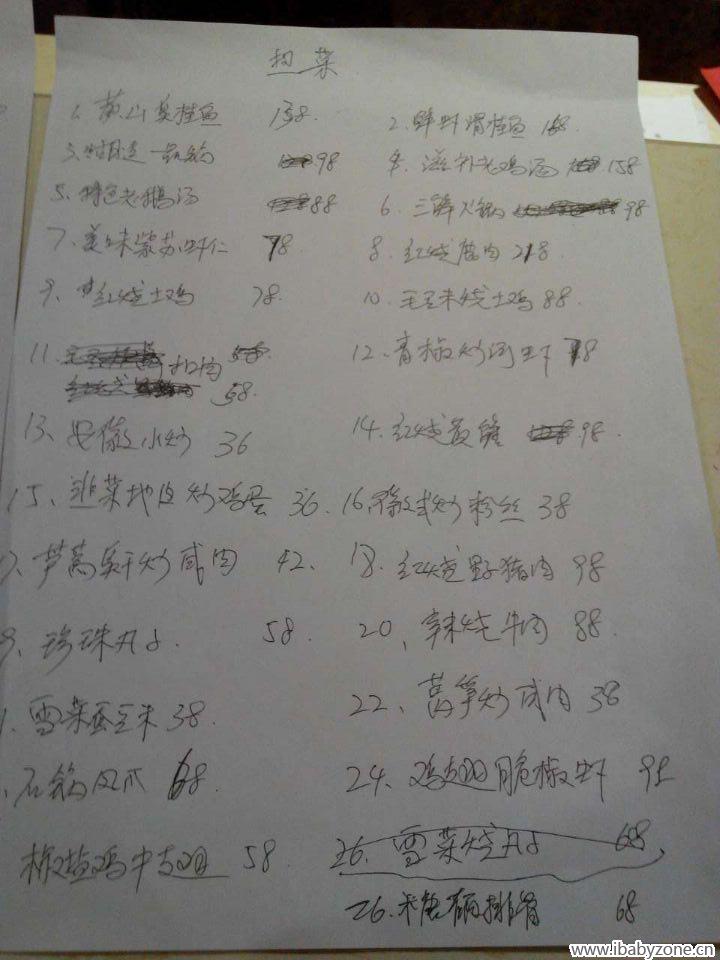 热菜
1、黄山臭桂鱼 158. 2、鲜虾滑桂鱼 168
3、一品锅 98 4、滋补老鸡汤 158
5、特色老鹅汤 88 6、三鲜火锅 98
7、美味紫苏虾仁 78 8、红烧鹿肉 218
9、红烧土鸡 78. 10、毛豆米烧土鸡 88
11、扣肉 58. 12、青椒炒河虾 78
13、安徽小炒 36 14、红烧 98.
15、韭菜地皮炒鸡蛋 36. 16、徽式炒粉丝 38
芦蒿香干炒咸肉 42. 18、红烧野猪肉 98
珍珠丸子 58. 20、辣烧牛肉 88
雪菜蚕豆米 38. 22、莴笋炒咸肉 38
石锅凤爪 68. 24、鸡翅脆椒虾 98
椒盐鸡中翅 58. 26、雪菜烧丸子 68
26、排骨 68
www.ibabyzone.cn